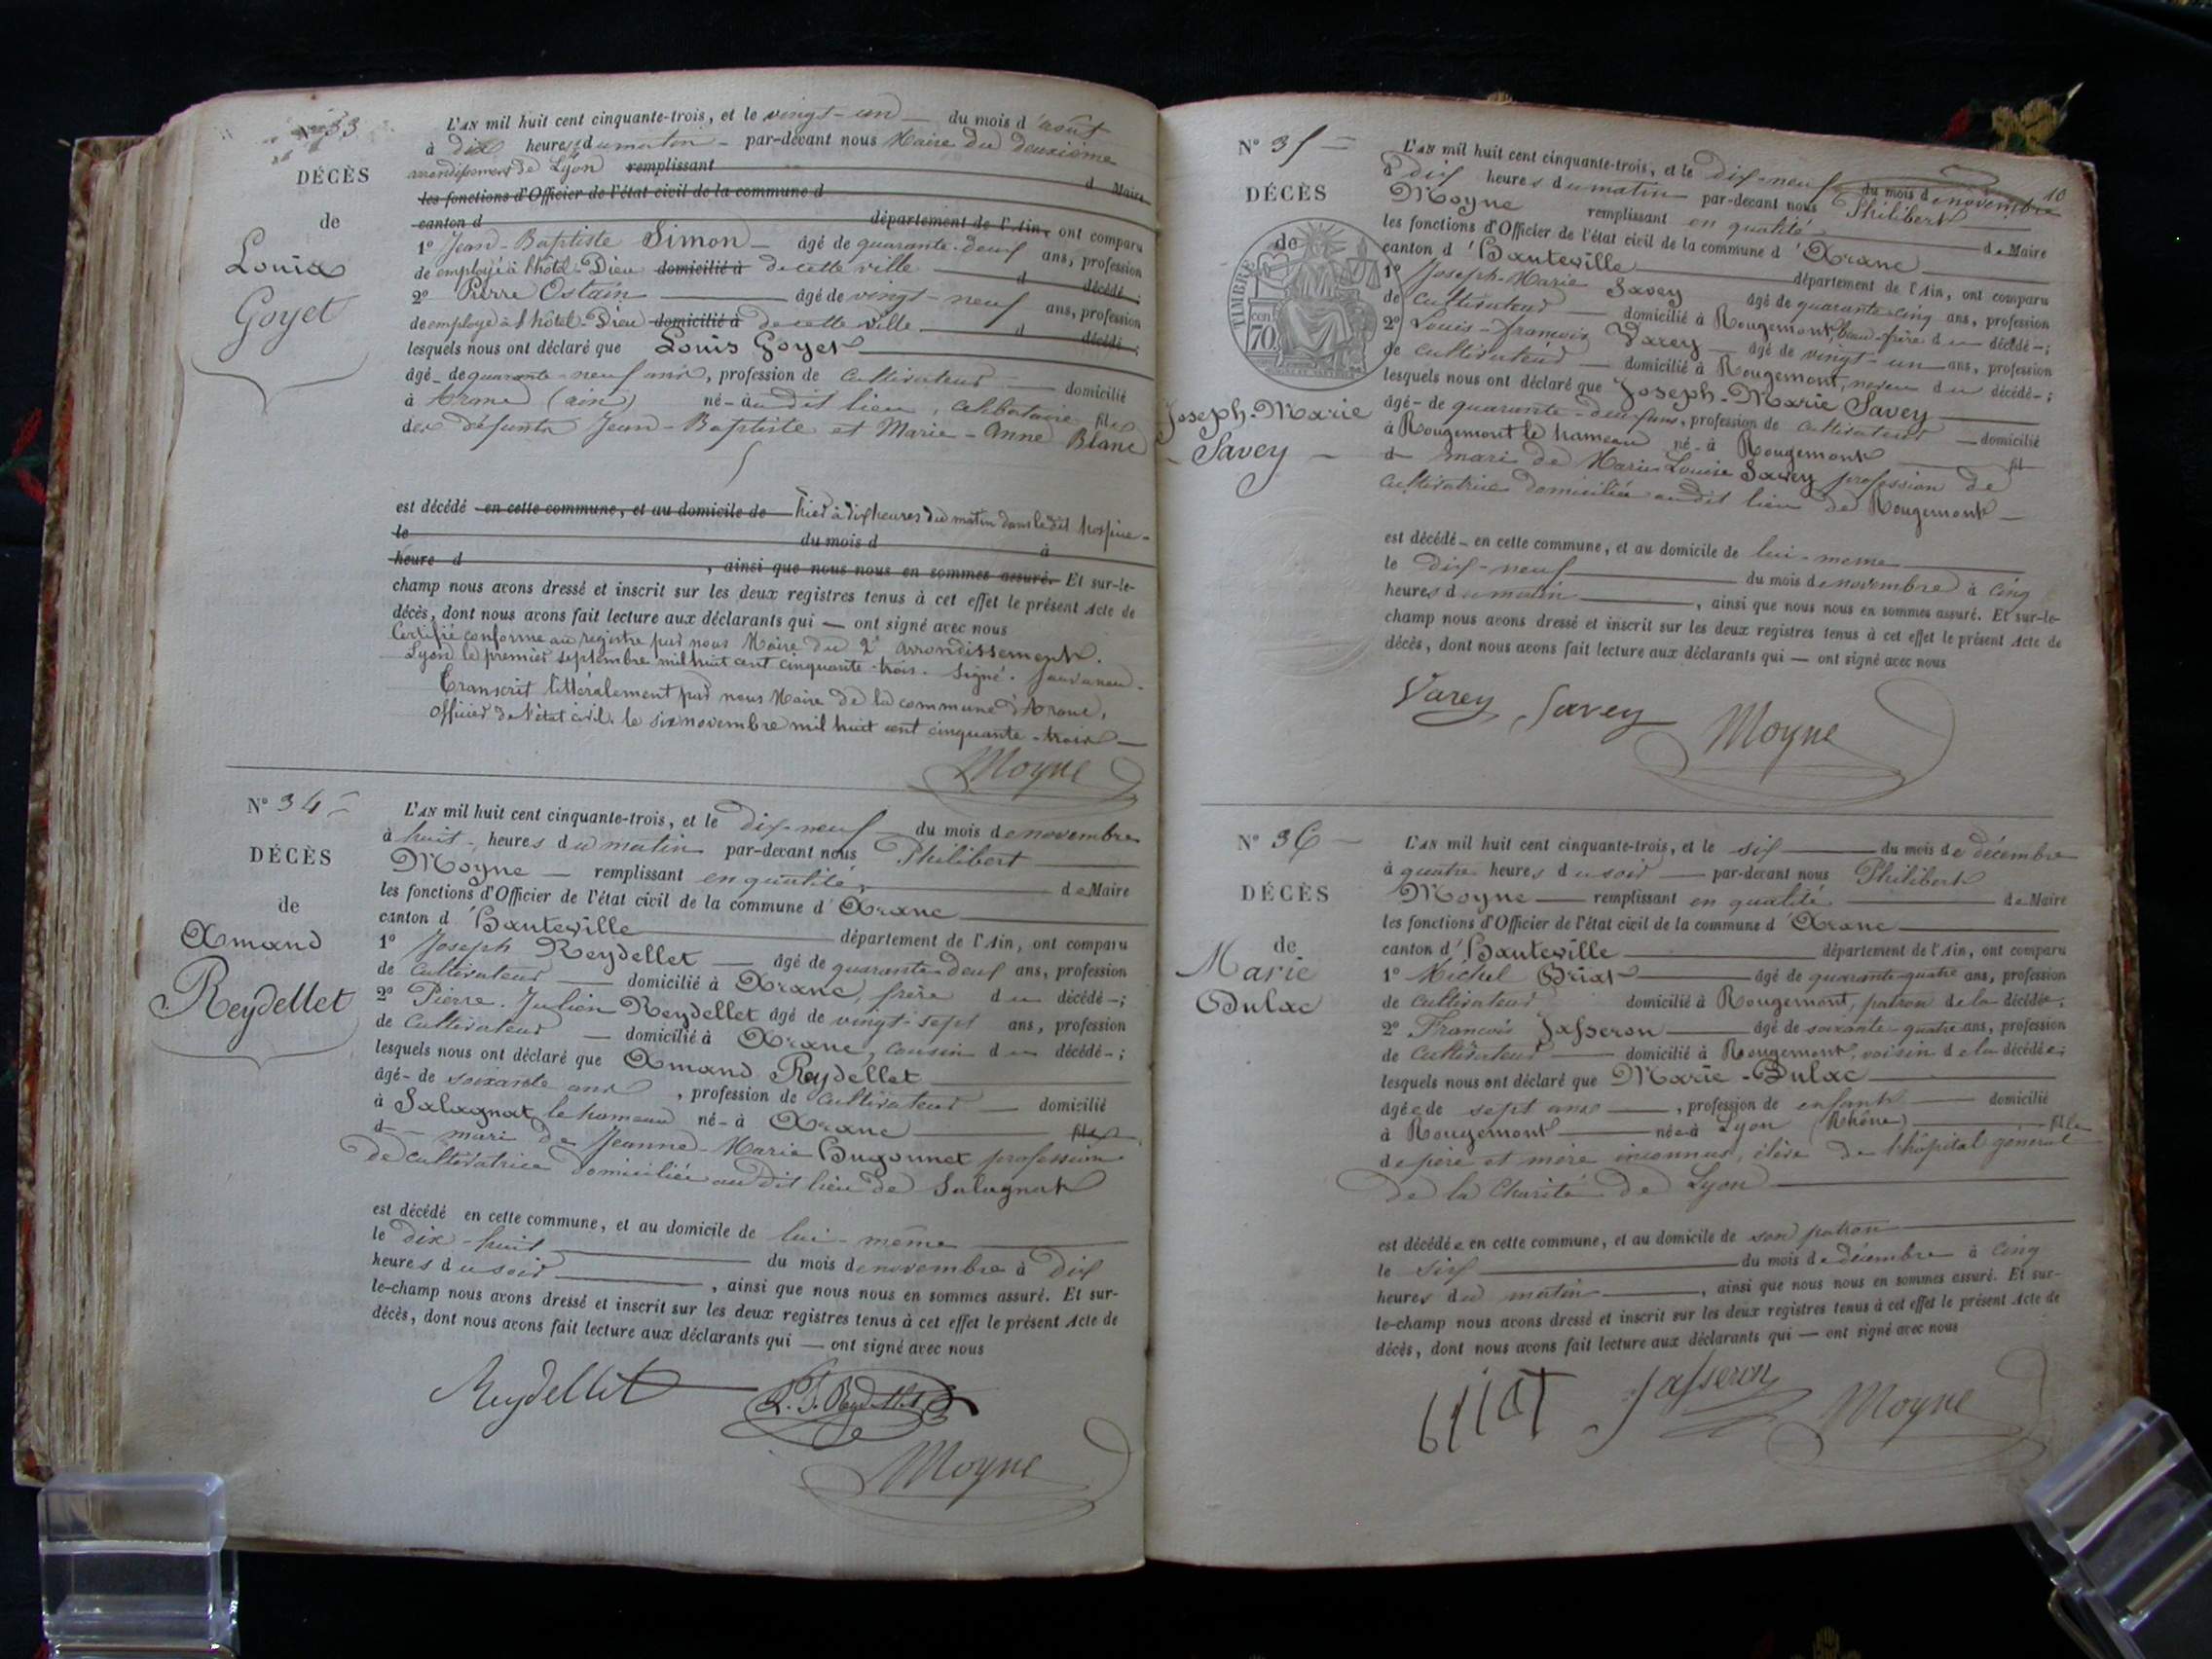 N° 33
DÉCÈS
de
Louis
Goyet
L'AN mil huit cent cinquante-trois, et le vingt-un du mois d'août
à dix heures du matin par-devant nous Maire du deuxième
arrondissement de Lyon remplissant d Maire
les fonctions d'Officier de l'état civil de la commune d
canton d département de l'Ain, ont comparu
1° Jean-Baptiste Simon âgé de quarante-deux ans, profession
de employé à l'hôtel-Dieu domicilié à de cette ville d décédé;
2° Pierre Ostain âgé de vingt-neuf ans, profession
de employé à l'hôtel-Dieu domicilié à de cette ville d décédé;
lesquels nous ont déclaré que Louis Goyet
âgé de quarante-neuf ans, profession de cultivateur domicilié
à (ain) né à audit lieu, célibataire fils
des défunts Jean-Baptiste et Marie-Anne Blanc
est décédé en cette commune, et au domicile de hier à dix heures du matin dans ledit hospice
le du mois d à
heure d , ainsi que nous nous en sommes assuré. Et sur-le-
champ nous avons dressé et inscrit sur les deux registres tenus à cet effet le présent Acte de
décès, dont nous avons fait lecture aux déclarants qui ont signé avec nous
Certifié conforme au registre par nous Maire du 2e arrondissement.
Lyon le premier septembre mil huit cent cinquante-trois. Signé.
Transcrit littéralement par nous Maire de la commune d'Aranc,
officier de l'état civil. le six novembre mil huit cent cinquante-trois
Moyne
N° 34
DÉCÈS
de
Amand
Reydellet
L'AN mil huit cent cinquante-trois, et le dix-neuf du mois de novembre
à huit heures du matin par-devant nous Philibert
Moyne remplissant en qualité de Maire
les fonctions d'Officier de l'état civil de la commune d'Aranc
canton d'Hauteville département de l'Ain, ont comparu
1° Joseph Reydellet âgé de quarante-deux ans, profession
de cultivateur domicilié à Aranc, frère du décédé;
2° Pierre-Julien Reydellet âgé de vingt-sept ans, profession
de cultivateur domicilié à Aranc, cousin du décédé;
lesquels nous ont déclaré que Amand Reydellet
âgé de soixante ans, profession de cultivateur domicilié
à Salagnat le hameau né à Aranc fils
d mari de Jeanne-Marie Hugonnet profession
de cultivatrice domiciliée audit lieu de Salagnat
est décédé en cette commune, et au domicile de lui-même
le dix-huit du mois de novembre à dix
heures du soir, ainsi que nous nous en sommes assuré. Et sur-
le-champ nous avons dressé et inscrit sur les deux registres tenus à cet effet le présent Acte de
décès, dont nous avons fait lecture aux déclarants qui ont signé avec nous
Reydellet P. J. Reydellet
Moyne
10
N° 35
DÉCÈS
de
TIMBRE
cen
70
Joseph-Marie
Savey
L'AN mil huit cent cinquante-trois, et le dix-neuf du mois de novembre
à dix heures du matin par-devant nous Philibert
Moyne remplissant en qualité de Maire
les fonctions d'Officier de l'état civil de la commune d'Aranc
canton d'Hauteville département de l'Ain, ont comparu
1° Joseph-Marie Savey âgé de quarante-cinq ans, profession
de cultivateur domicilié à Rougemont, beau-frère du décédé;
2° Louis-François Varey âgé de vingt-un ans, profession
de cultivateur domicilié à Rougemont, neveu du décédé;
lesquels nous ont déclaré que Joseph-Marie Savey
âgé de quarante-deux ans, profession de cultivateur domicilié
à Rougemont le hameau né à Rougemont fil
d mari de Marie Louise Savey profession de
cultivatrice domiciliée audit lieu de Rougemont
est décédé en cette commune, et au domicile de lui-meme
le dix-neuf du mois de novembre à cinq
heures du matin, ainsi que nous nous en sommes assuré. Et sur-le-
champ nous avons dressé et inscrit sur les deux registres tenus à cet effet le présent Acte de
décès, dont nous avons fait lecture aux déclarants qui ont signé avec nous
Varey Savey Moyne
N° 36
DÉCÈS
de
Marie
Dulac
L'AN mil huit cent cinquante-trois, et le six du mois de décembre
à quatre heures du soir par-devant nous Philibert
Moyne remplissant en qualité de Maire
les fonctions d'Officier de l'état civil de la commune d'Aranc
canton d'Hauteville département de l'Ain, ont comparu
1° Michel Griat âgé de quarante-quatre ans, profession
de cultivateur domicilié à Rougemont, patron de la décédée;
2° François Jasseron âgé de soixante-quatre ans, profession
de cultivateur domicilié à Rougemont, voisin de la décédée;
lesquels nous ont déclaré que Marie-Dulac
âgée de sept ans, profession de enfant domicilié
à Rougemont née à Lyon (Rhône) fille
de père et mère inconnus, élève de l'hôpital général
de la Charité de Lyon
est décédée en cette commune, et au domicile de son patron
le six du mois de décembre à cinq
heures du matin, ainsi que nous nous en sommes assuré. Et sur-
le-champ nous avons dressé et inscrit sur les deux registres tenus à cet effet le présent Acte de
décès, dont nous avons fait lecture aux déclarants qui ont signé avec nous
Jasseron Moyne